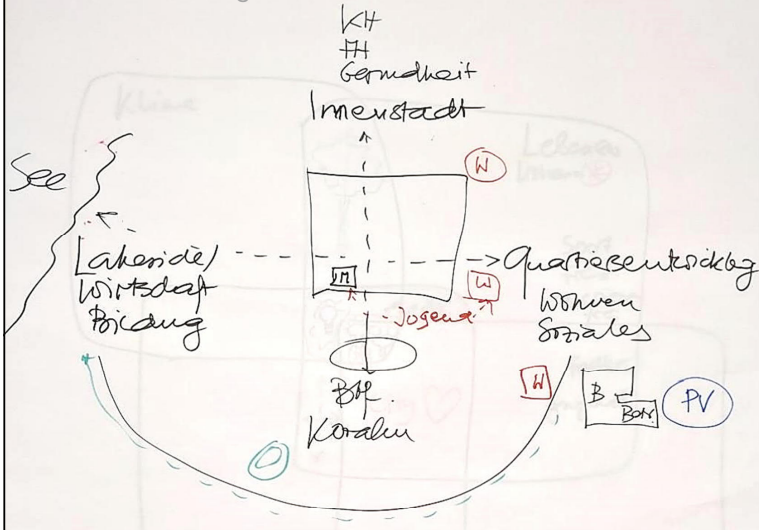 KH
FH
Gesundheit
Innenstadt
See
W
Lakeside/
Wirtschaft
Bildung
Quartiersentwicklung
Wohnen
Soziales
W
- Jugend
W
B
PV
Bhf.
Koralm
Klima